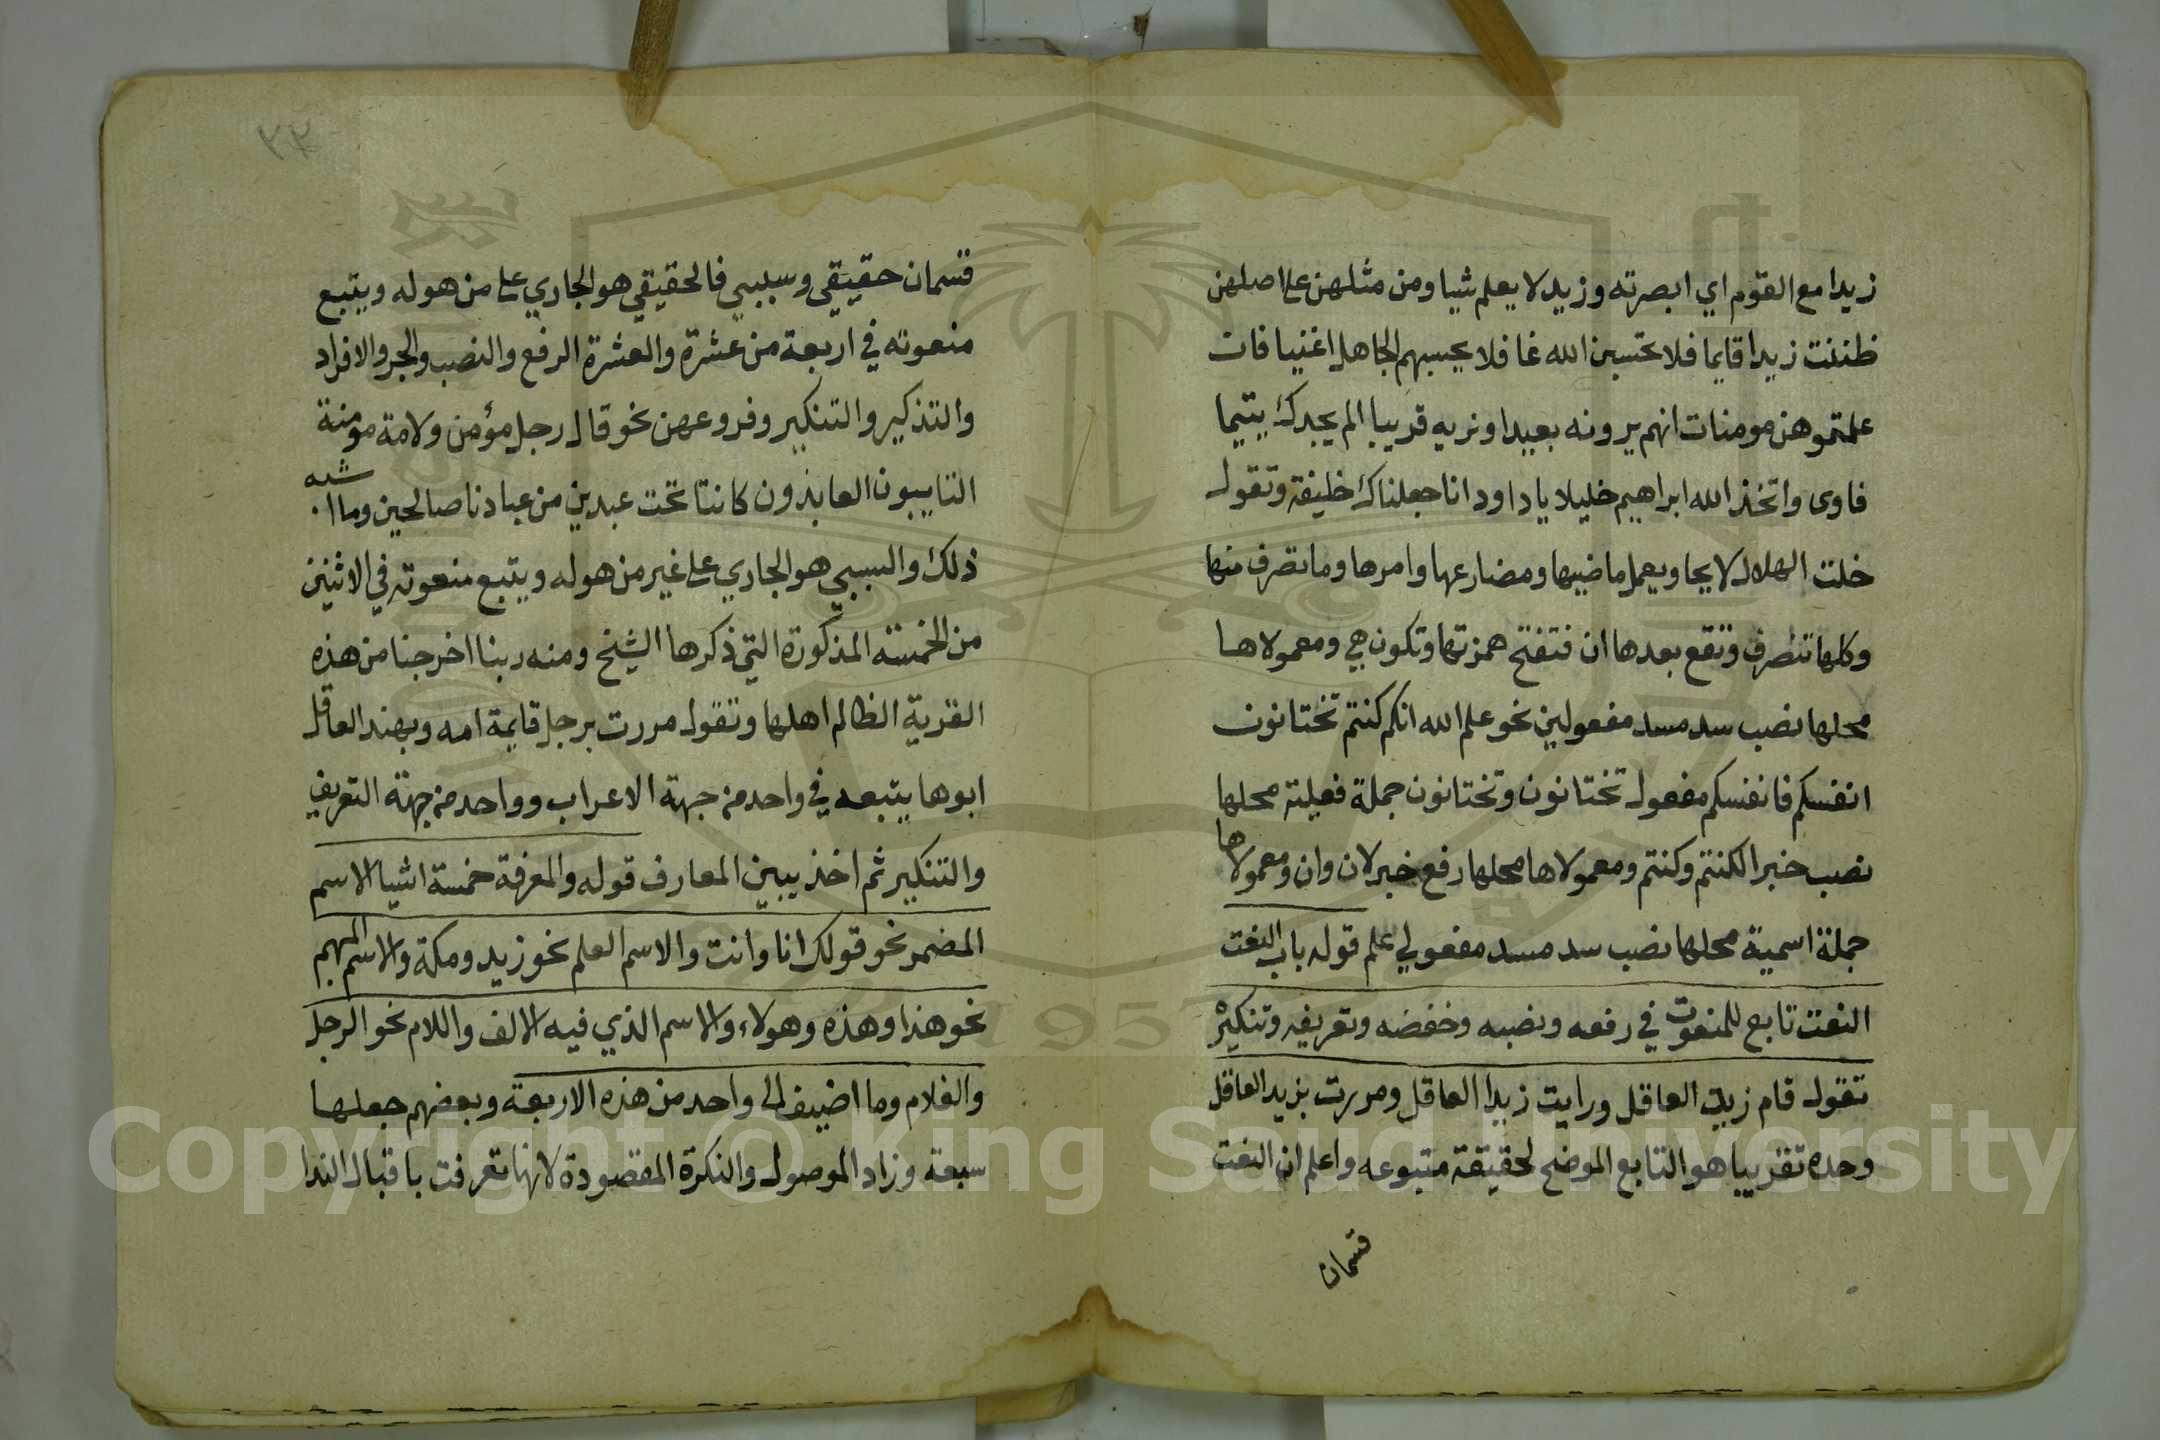 زيدا مع القوم اي ابصرته وزيد لا يعلم شيا ومن مثلهن على اصلهن
ظننت زيدا قايما فلا تحسبن الله غافلا يحسبهم الجاهل اغنيا فان
علمتموهن مومنات انهم يرونه بعيدا ونريه قريبا الم يجدك يتيما
فاوى واتخذ الله ابراهيم خليلا يا داود انا جعلناك خليفة وتقول
خلت الهلال لايحا ويعمل ماضيها ومضارعها وامرها وما تصرف منها
وكلها تتصرف وتقع بعدها ان فتفتح همزتها وتكون هي ومعمولاها
محلها نصب سد مسد مفعولين نحو علم الله انكم كنتم تختانون
انفسكم فانفسكم مفعول تختانون وتختانون جملة فعلية محلها
نصب خبر الكنتم وكنتم ومعمولاها محلها رفع خبر لان وان ومعمولاها
جملة اسمية محلها نصب سد مسد مفعولي علم قوله باب النعت
النعت تابع للمنعوت في رفعه ونصبه وخفضه وتعريفه وتنكيره
تقول قام زيد العاقل ورايت زيدا العاقل ومررت بزيد العاقل
وحده تقريبا هو التابع الموضح لحقيقة متبوعه واعلم ان النعت
قسمان
٣٣
قسمان حقيقي وسببي فالحقيقي هو الجاري على من هو له ويتبع
منعوته في اربعة من عشرة والعشرة الرفع والنصب والجر والافراد
والتذكير والتنكير وفروعهن نحو قال رجل مؤمن ولامة مومنة
التايبون العابدون كانتا تحت عبدين من عبادنا صالحين وما اشبه
ذلك والسببي هو الجاري على غير من هو له ويتبع منعوته في الاثنين
من الخمسة المذكورة التي ذكرها الشيخ ومنه ربنا اخرجنا من هذه
القرية الظالم اهلها وتقول مررت برجل قايمة امه وبهند العاقل
ابوها يتبعه في واحد من جهة الاعراب وواحد من جهة التعريف
والتنكير ثم اخذ يبين المعارف قوله والمعرفة خمسة اشيا الاسم
المضمر نحو قولك انا وانت والاسم العلم نحو زيد ومكة والاسم المبهم
نحو هذا وهذه وهولاء والاسم الذي فيه الالف واللام نحو الرجل
والغلام وما اضيف الى واحد من هذه الاربعة وبعضهم جعلها
سبعة وزاد الموصول والنكرة المقصودة لانها تعرفت باقبال الندا
Copyright © King Saud University
1957